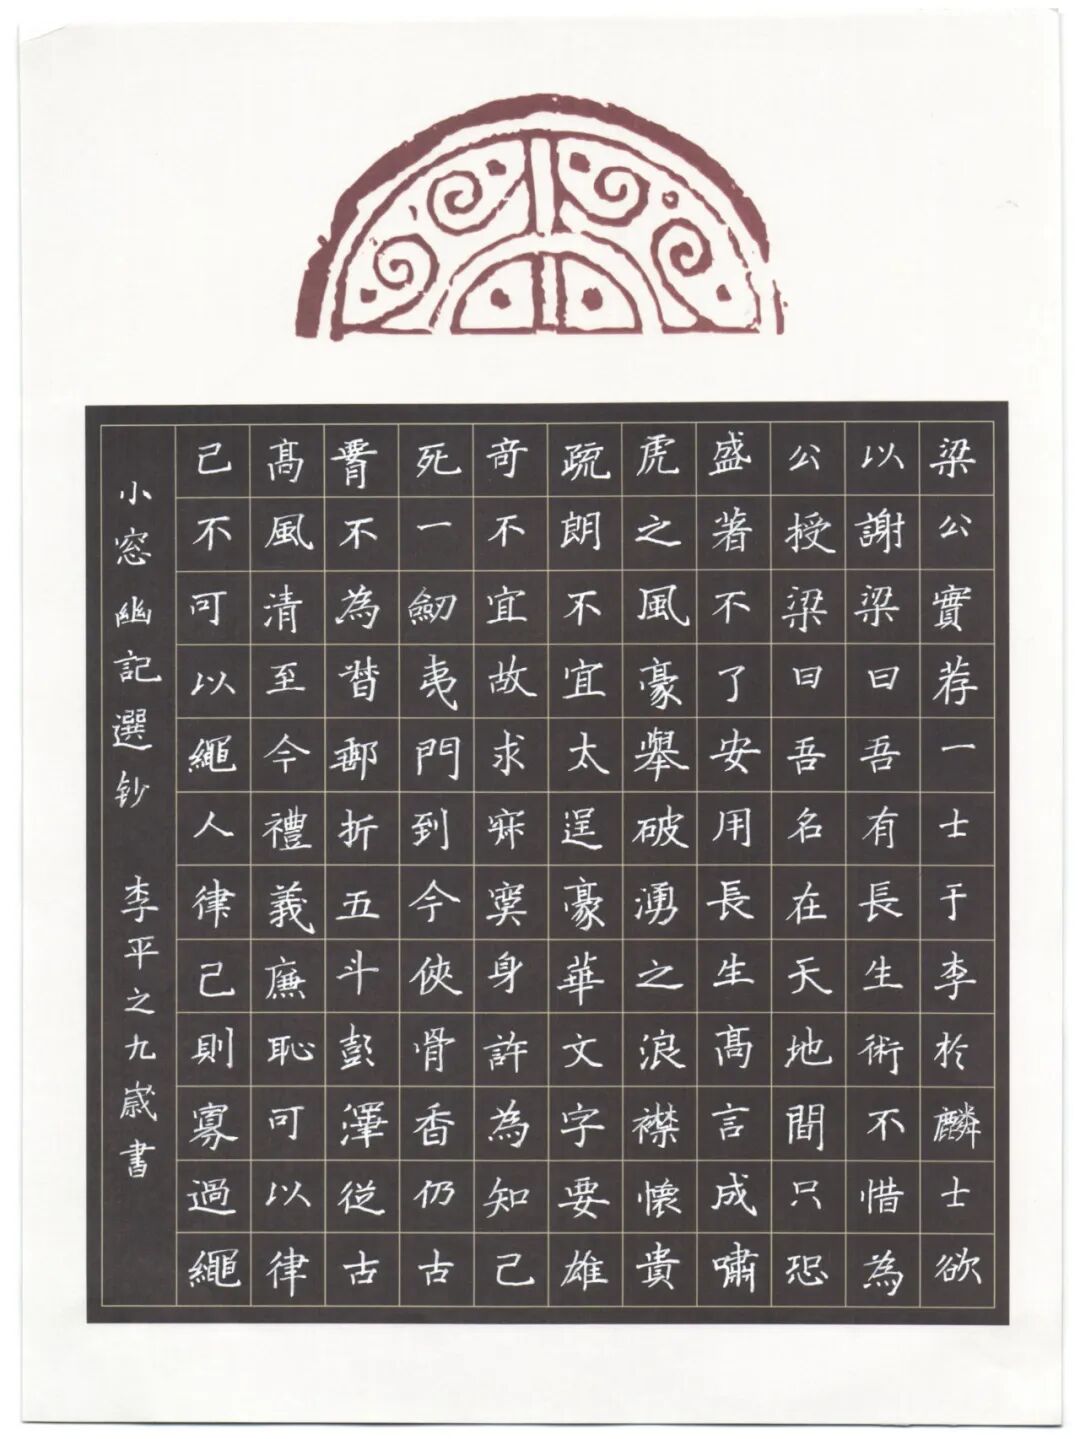 梁公實荐一士于李於麟士欲
以謝梁曰吾有長生術不惜為
公授梁曰吾名在天地間只恐
盛著不了安用長生髙言成嘯
虎之風豪舉破湧之浪襟懷貴
疏朗不宜太逞豪華文字要雄
奇不宜故求寂寞身許為知己
死一劒夷門到今俠骨香仍古
不為督郵折五斗彭澤從古
髙風清至今禮義廉恥可以律
己不可以繩人律己則寡過繩
小窓幽記選钞 李平之九歲書